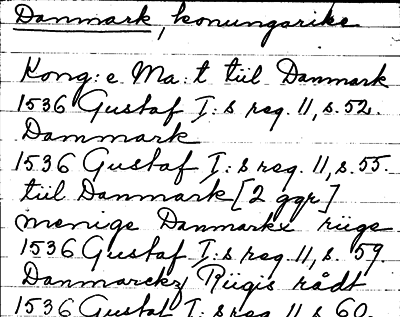 Danmark, konungarike
Kong:e Ma:t tiil Danmark
1536 Gustaf I:s reg. 11, s. 52.
Dammark
1536 Gustaf I:s reg. 11, s. 55.
tiil Danmark [2 ggr]
menige Danmarkx riige
1536 Gustaf I:s reg. 11, s. 59.
Danmarckz Riigis rådt
1536 Gustaf I:s reg. 11, s. 60.